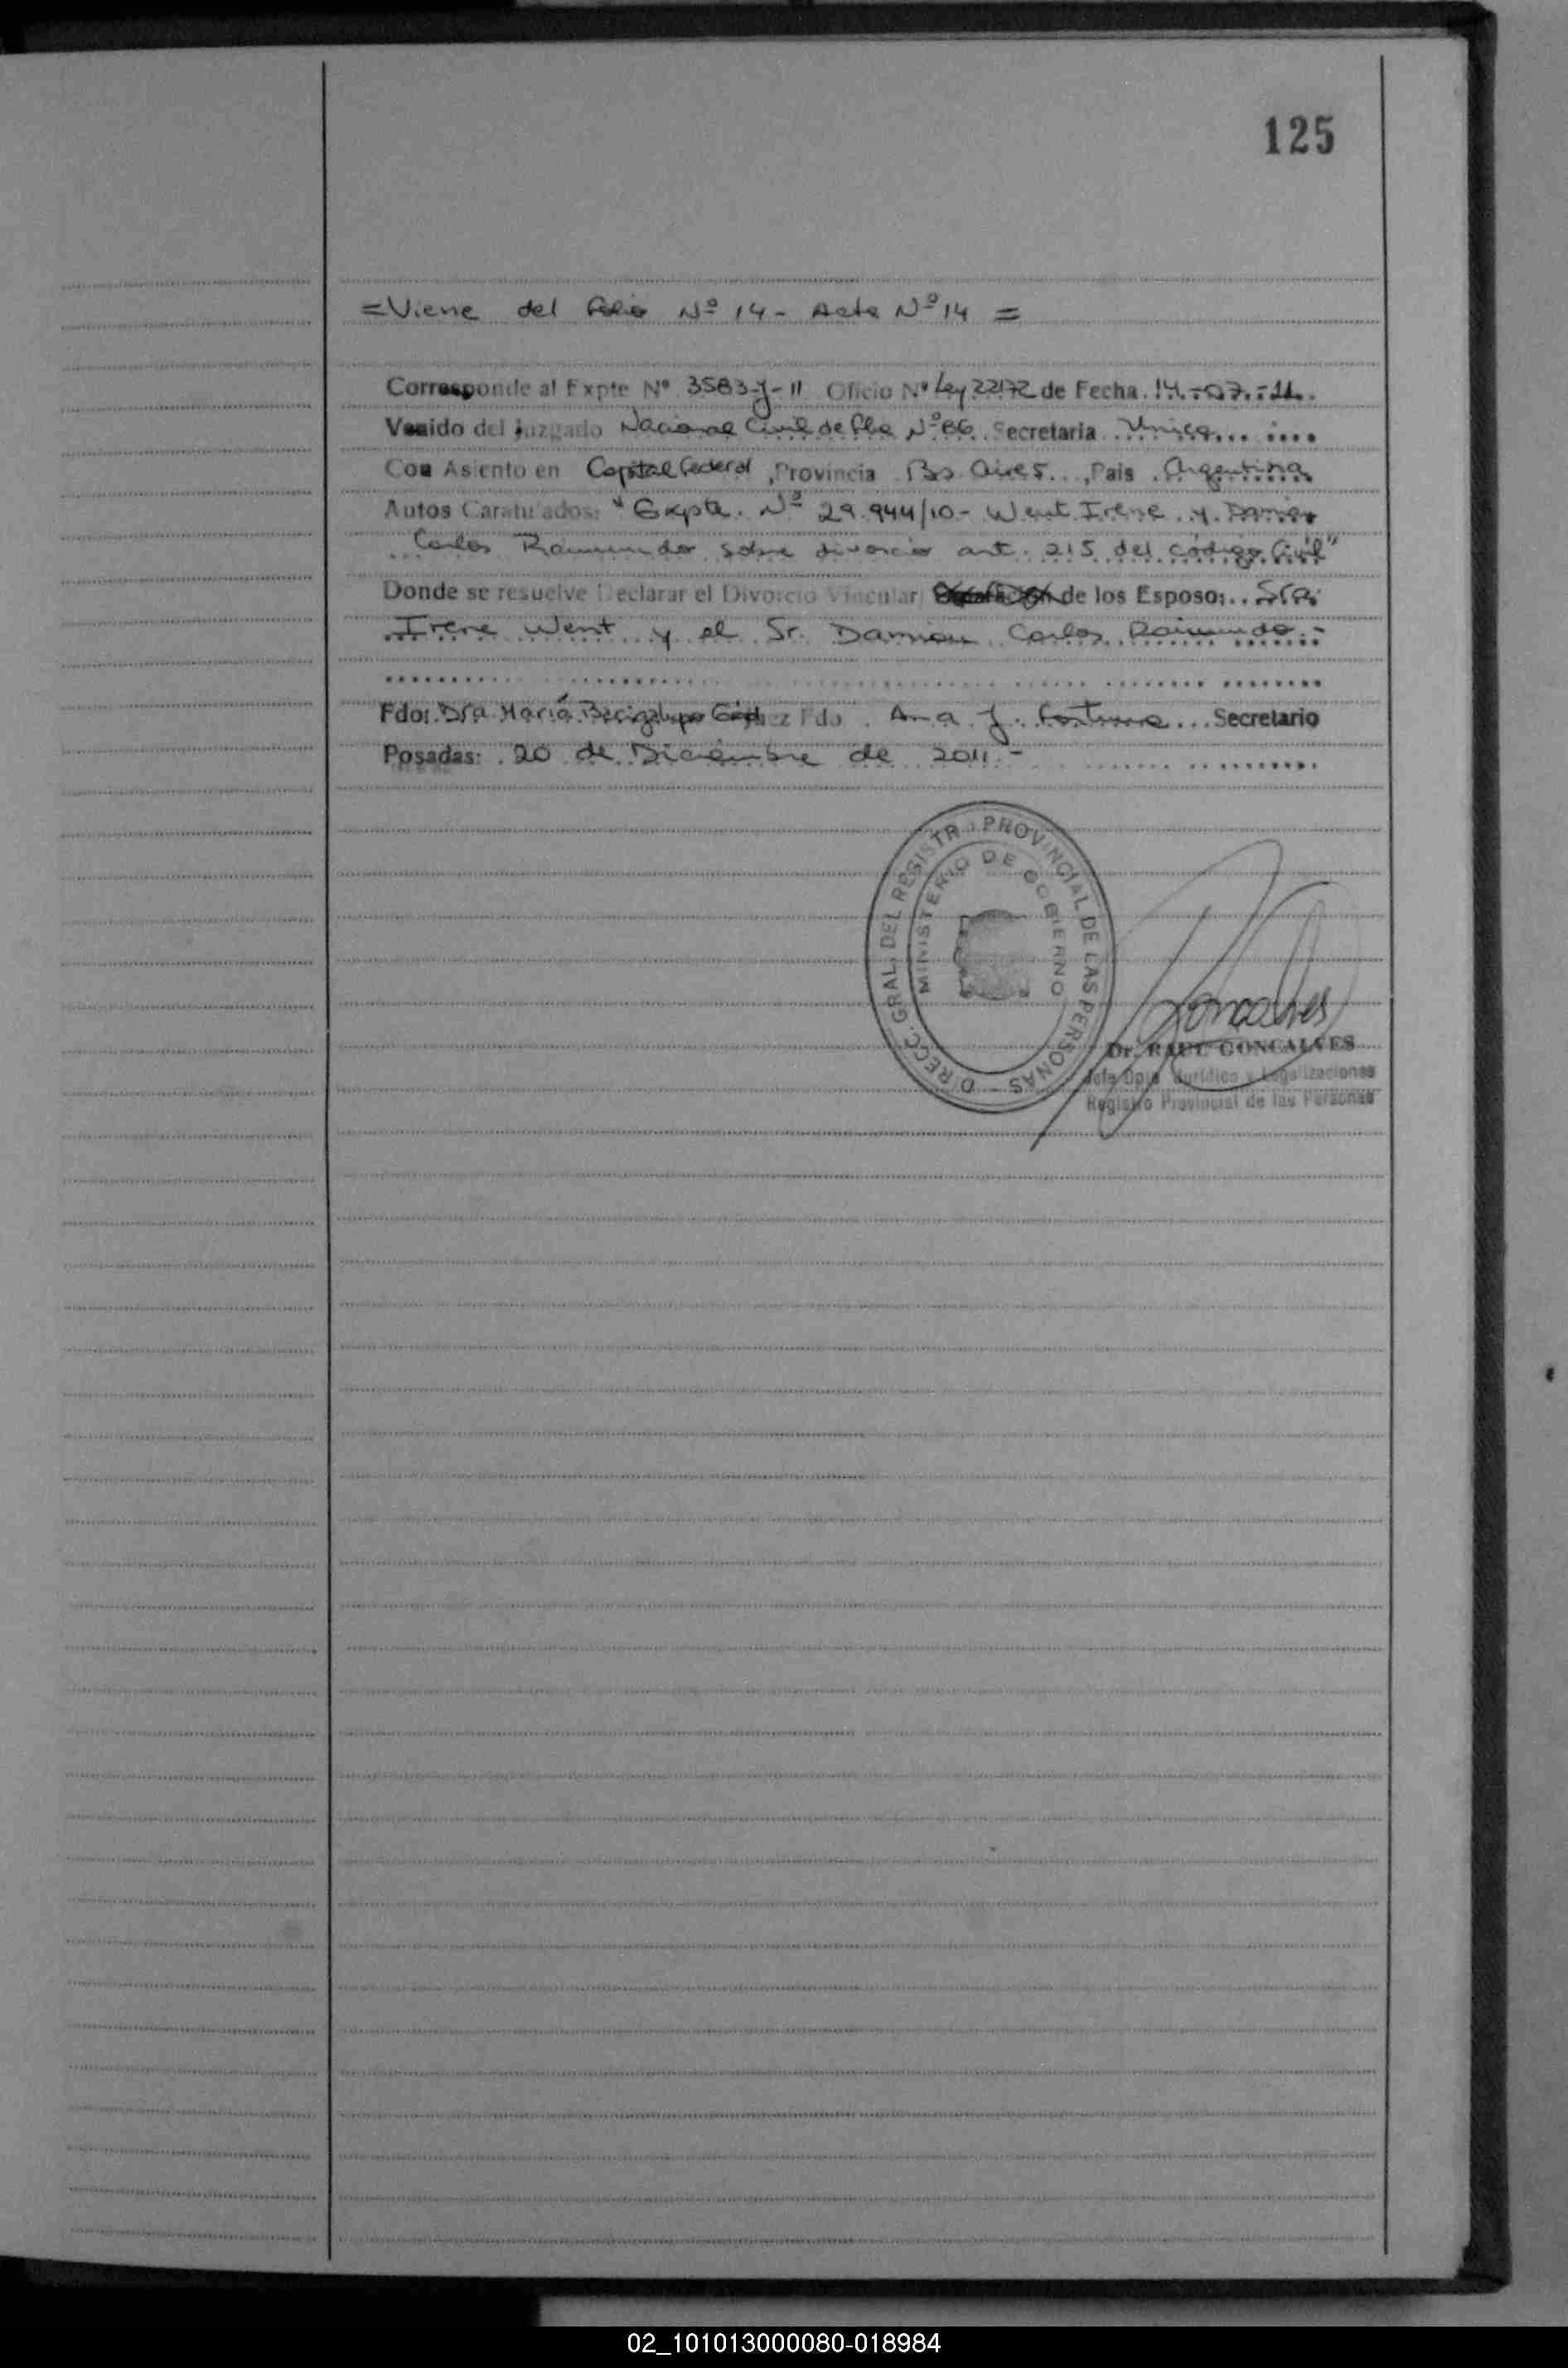 125
=Viene del folio Nº 14 - Acta Nº 14 =
Corresponde al Expte Nº 3583-J-11 Oficio Nº Ley 22172 de Fecha 14-07-11
Venido del Juzgado Nacional Civil de Nº 86 Secretaria Unica
Con Asiento en Capital Federal, Provincia Bs Aires, Pais Argentina
Autos Caratulados: "Expte. Nº 29.944/10 - Went Irene y Damian
Carlos Raimundo sobre divorcio art. 215 del código Civil"
Donde se resuelve Declarar el Divorcio Vincular de los Esposos: Sra.
Irene Went y el Sr. Damian Carlos Raimundo.-
Fdo: Dra. María Bacigalupo Juez Fdo. Ana J. Secretario
Posadas: 20 de Diciembre de 2011.-
DIRECC. GRAL. DEL REGISTRO PROVINCIAL DE LAS PERSONAS -
MINISTERIO DE GOBIERNO
Goncalves
Dr. RAUL GONCALVES
Jefe Dpto. Jurídico y Legalizaciones
Registro Provincial de las Personas
02_101013000080-018984